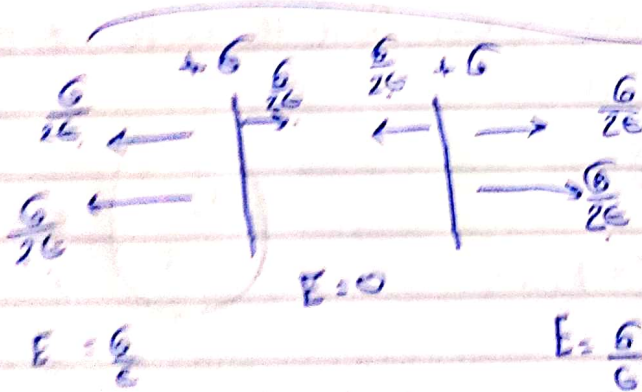 +σ +σ
σ/2ε σ/2ε σ/2ε σ/2ε
σ/2ε σ/2ε
E = 0
E = σ/ε E = σ/ε